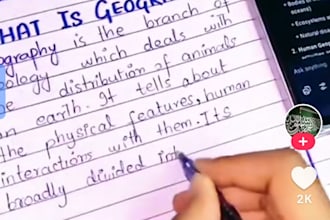 HAT IS GEOGR
ography is the branch of
ology which deals with
e distribution of animals
n earth. It tells about
the physical features, human
interactions with them. Its
broadly divided int
• Bodies of
oceans)
• Ecosystems
• Natural
2. Human Geog
Ask anything
2K